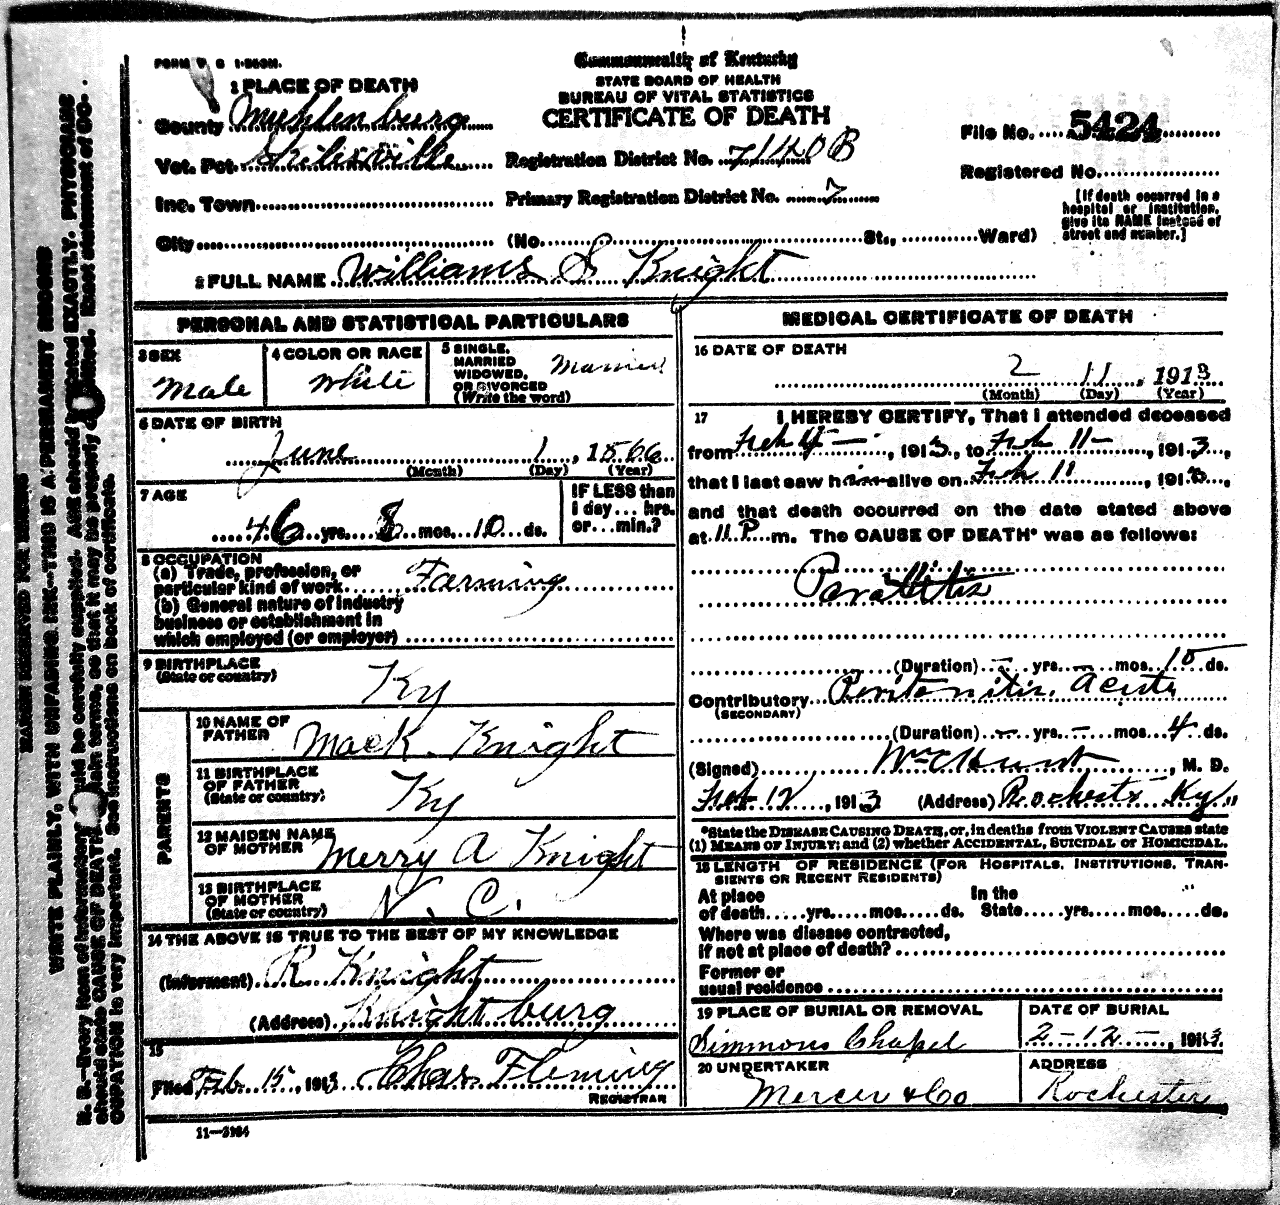 FORM V. S 1-250M.
Commonwealth of Kentucky
STATE BOARD OF HEALTH
BUREAU OF VITAL STATISTICS
CERTIFICATE OF DEATH
1 PLACE OF DEATH
County Muhlenburg
Vot. Pct.
Inc. Town
City
Registration District No. 7140B
Primary Registration District No. 7
(No. St., Ward)
File No. 5424
Registered No.
[If death occurred in a
hospital or institution,
give its NAME instead of
street and number.]
2 FULL NAME Williams S Knight
PERSONAL AND STATISTICAL PARTICULARS
3 SEX
Male
4 COLOR OR RACE
White
5 SINGLE,
MARRIED
WIDOWED,
OR DIVORCED
(Write the word)
Married
6 DATE OF BIRTH
June 1, 1866
(Month) (Day) (Year)
7 AGE
46 yrs. 8 mos. 10 ds.
IF LESS than
1 day... hrs.
or...min.?
8 OCCUPATION
(a) Trade, profession, or
particular kind of work Farming
(b) General nature of industry
business or establishment in
which employed (or employer)
9 BIRTHPLACE
(State or country)
Ky
PARENTS
10 NAME OF
FATHER
Mack. Knight
11 BIRTHPLACE
OF FATHER
(State or country)
Ky
12 MAIDEN NAME
OF MOTHER
Merry A Knight
13 BIRTHPLACE
OF MOTHER
(State or country)
N. C.
14 THE ABOVE IS TRUE TO THE BEST OF MY KNOWLEDGE
(Informant) R Knight
(Address) Knightburg
15
Filed Feb 15, 1913 Chas Fleming
REGISTRAR
11-3184
MEDICAL CERTIFICATE OF DEATH
16 DATE OF DEATH
2 11, 1913
(Month) (Day) (Year)
17 I HEREBY CERTIFY, That I attended deceased
from Feb 4 -, 1913, to Feb 11 -, 1913,
that I last saw him alive on Feb 11, 1913,
and that death occurred on the date stated above
at 11 P. m. The CAUSE OF DEATH* was as follows:
(Duration) - yrs. - mos. 10 ds.
Contributory Peritonitis. Acute
(SECONDARY)
(Duration) - yrs. - mos. 4 ds.
(Signed), M. D.
Feb 12, 1913 (Address) Rochester Ky
*State the DISEASE CAUSING DEATH, or, in deaths from VIOLENT CAUSES state
(1) MEANS OF INJURY; and (2) whether ACCIDENTAL, SUICIDAL or HOMICIDAL.
18 LENGTH OF RESIDENCE (FOR HOSPITALS, INSTITUTIONS, TRAN-
SIENTS OR RECENT RESIDENTS)
At place
of death.....yrs.....mos.....ds.
In the
State.....yrs.....mos.....ds.
Where was disease contracted,
if not at place of death?
Former or
usual residence
19 PLACE OF BURIAL OR REMOVAL
Simmons Chapel
DATE OF BURIAL
2-12-, 1913.
20 UNDERTAKER
Mercer & Co
ADDRESS
Rochester
MARGIN RESERVED FOR BINDING
WRITE PLAINLY, WITH UNFADING INK—THIS IS A PERMANENT RECORD
N. B.—Every item of information should be carefully supplied. AGE should be stated EXACTLY. PHYSICIANS
should state CAUSE OF DEATH in plain terms, so that it may be properly classified. Exact statement of OC-
CUPATION is very important. See instructions on back of certificate.